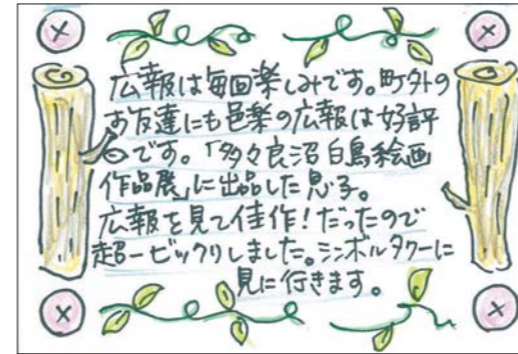 広報は毎回楽しみです。町外の
お友達にも邑楽の広報は好評
◎です。「多々良沼白鳥絵画
作品展」に出品した息子。
広報を見て佳作！だったので
超ービックリしました。シンボルタワーに
見に行きます。